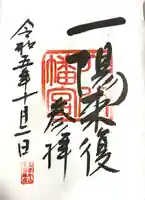 一陽来復
参拝
令和五年十月二日